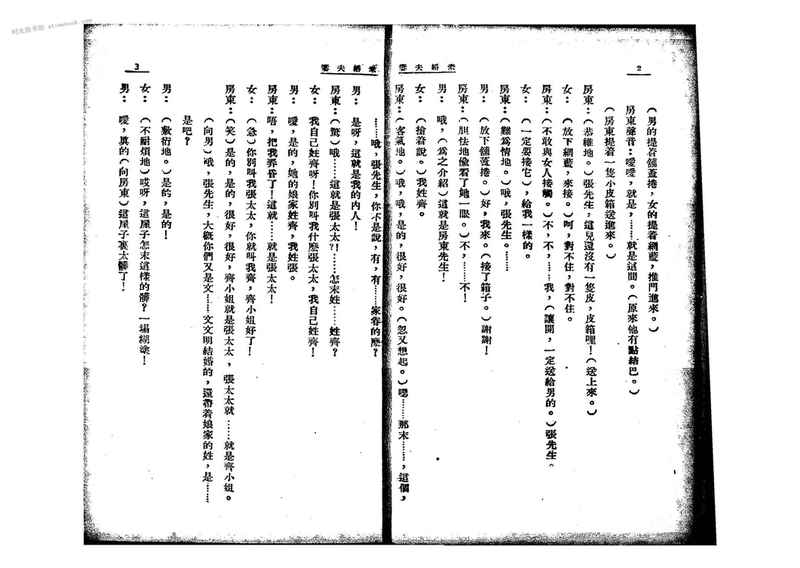 2
（男的提着舖蓋捲，女的提着網藍，推門進來。）
房東聲音：噯噯，就是，……就是這間。（原來他有點結巴。）
（房東提着一隻小皮箱送進來。）
房東：（恭維地。）張先生，這兒還沒有一隻皮，皮箱哩！（送上來。）
女：（放下網藍，來接。）呵，對不住，對不住。
房東：（不敢與女人接觸。）不，不，……我，（讓開，一定送給男的。）張先生。
女：（一定要接它），給我一樣的。
房東：（難爲情地。）哦，張先生。……
男：（放下舖蓋捲。）好，我來。（接了箱子。）謝謝！
房東：（胆怯地偷看了她一眼。）不，……不！
男：哦，（爲之介紹）這就是房東先生！
女：（搶着說。）我姓齊。
房東：（客氣地。）哦，哦，是的，很好，很好。（忽又想起。）嗯……那末……，這個，
3
……哦，張先生，你不是說，有，有……家眷的麼？
男：是呀，這就是我的內人！
房東：（驚）哦……這就是張太太！……怎末姓……姓齊？
女：我自己姓齊呀！你別叫我什麼張太太，我自己姓齊！
男：噯，是的，她的娘家姓齊，我姓張。
房東：唔，把我弄昏了！這就……就是張太太！
女：（急）你別叫我張太太，你就叫我齊，齊小姐好了！
房東：（笑）是的，是的，很好，很好，齊小姐就是張太太，張太太就……就是齊小姐。
（向男）哦，張先生，大概你們又是文……文文明結婚的，還帶着娘家的姓，是……
是吧？
男：（敷衍地。）是的，是的！
女：（不耐煩地）哎呀，這屋子怎末這樣的髒？一塌糊塗！
男：噯，眞的（向房東）這屋子裏太髒了！